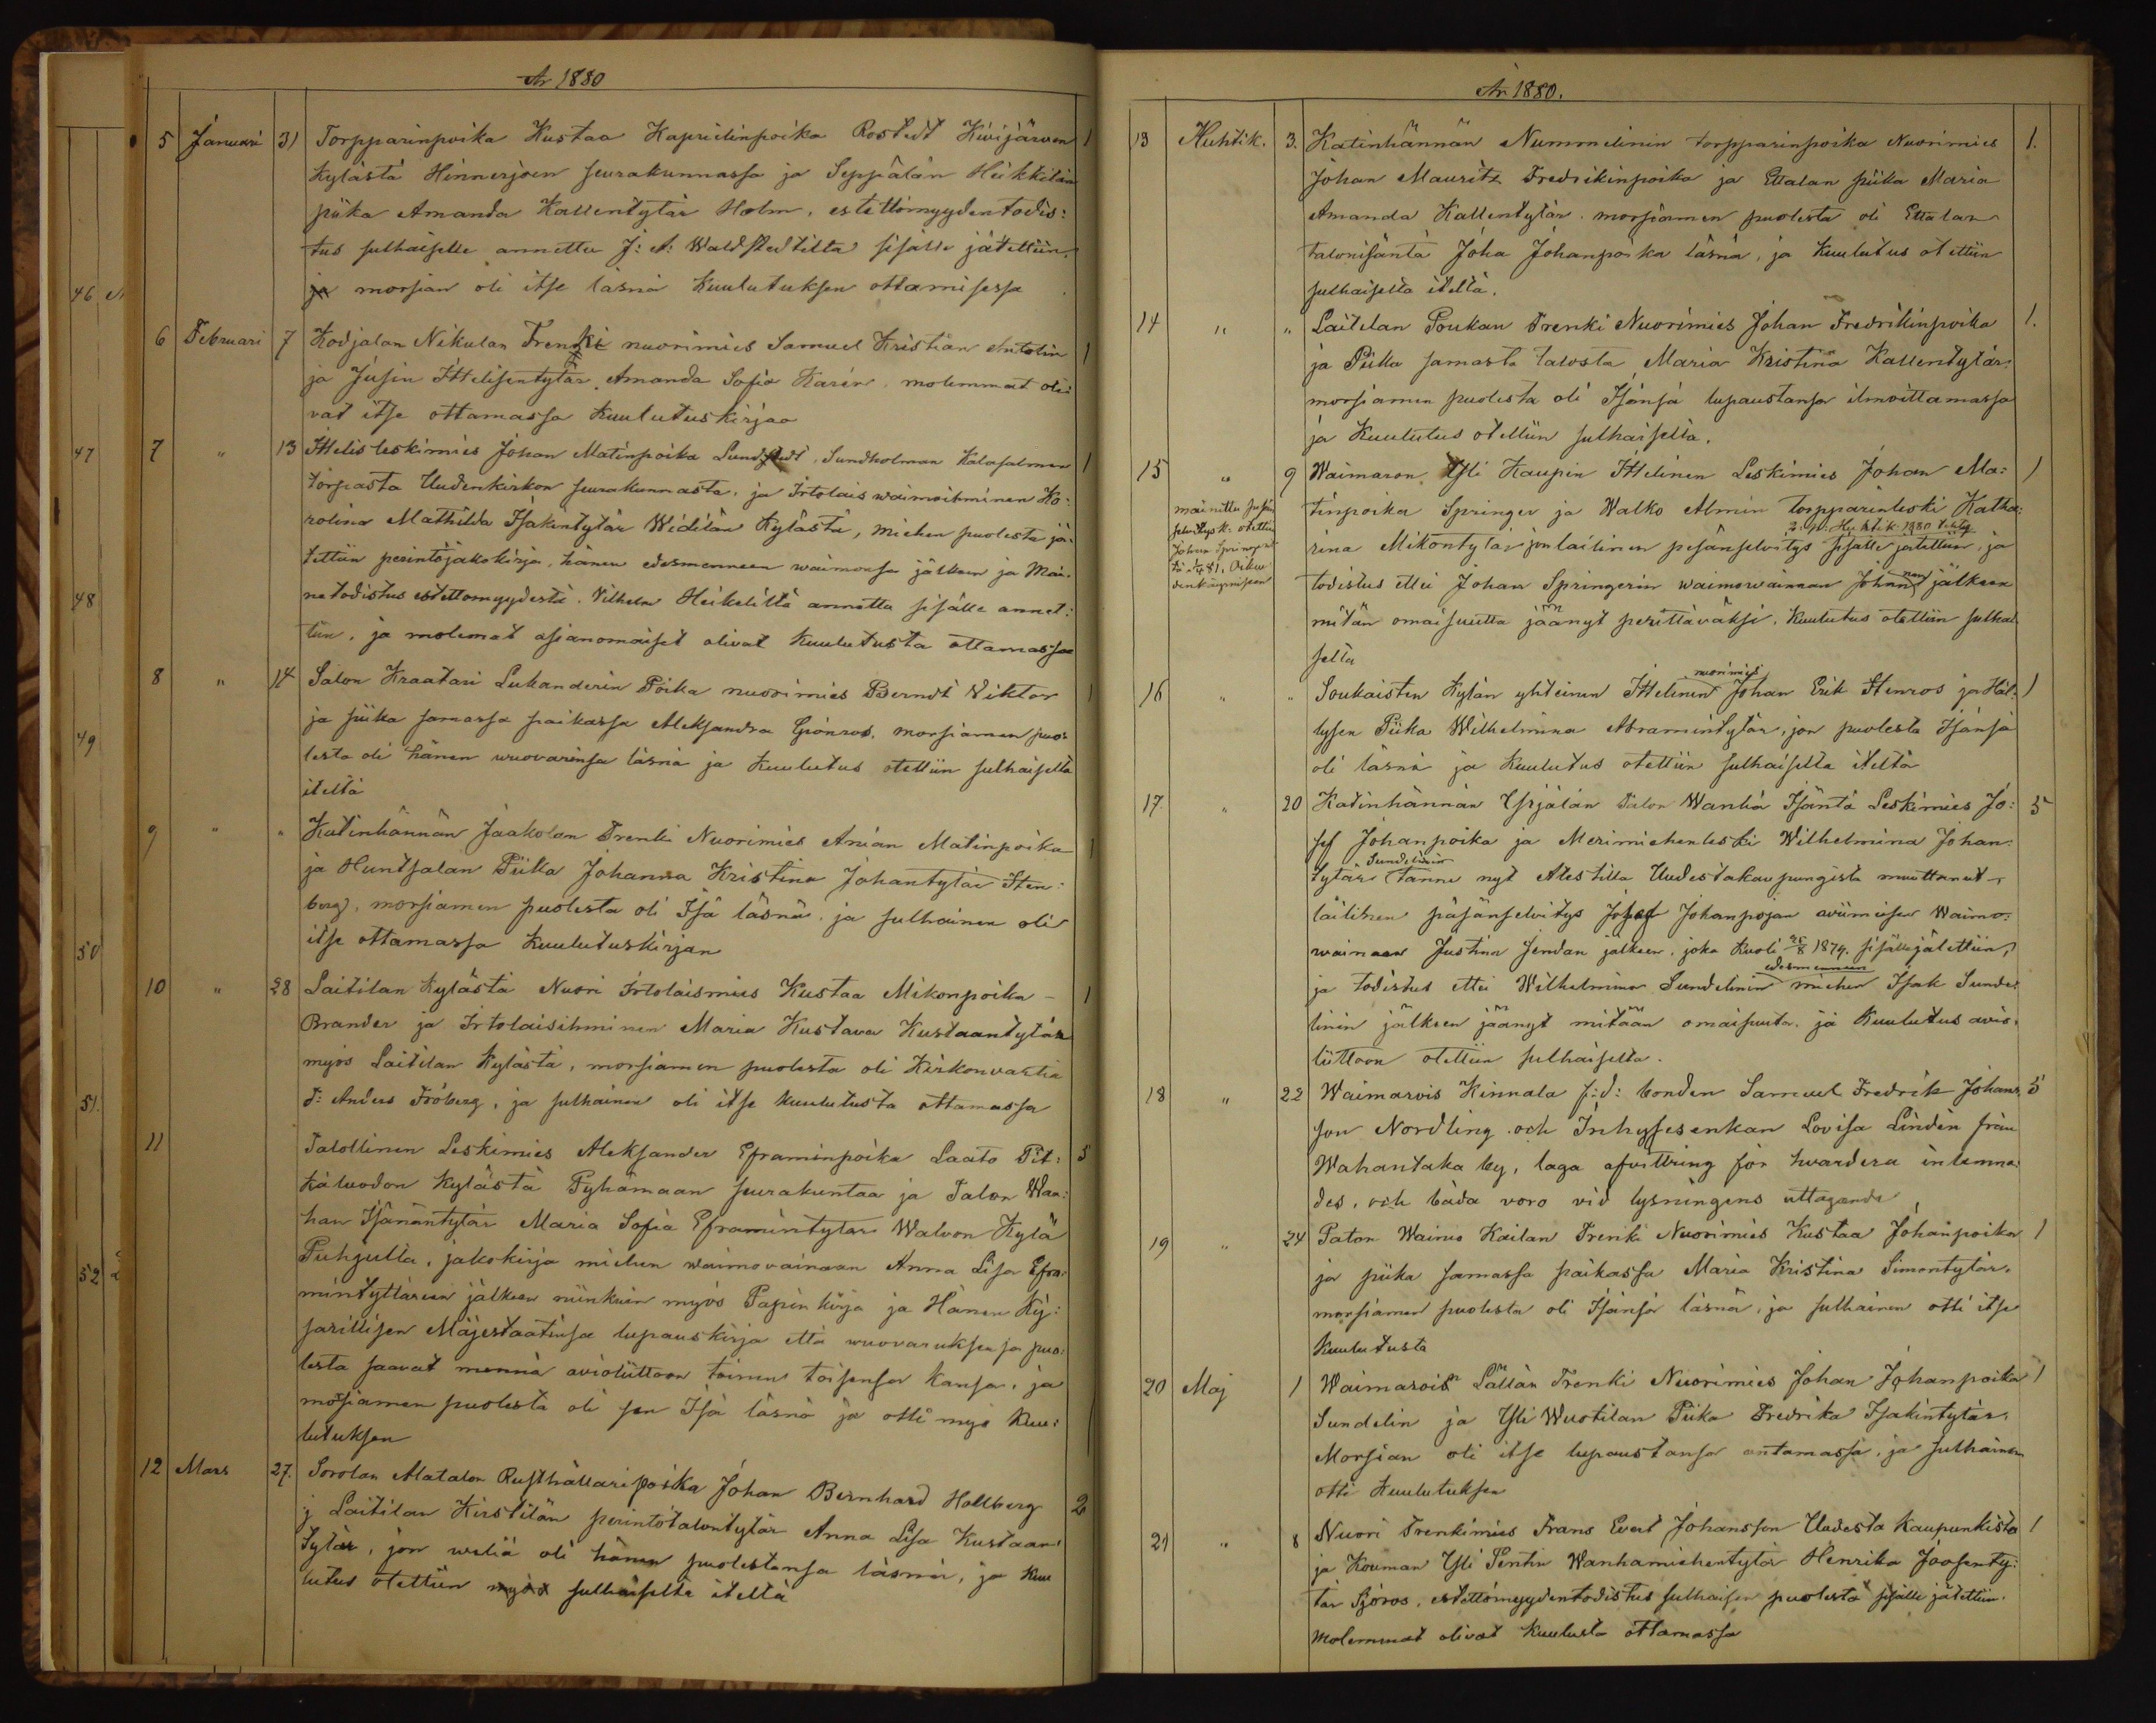 År 1880
5 Januari 31 Torpparinpoika Kustaa Kaprielinpoika Rostedt Kivijärven 1
Kylästä Hinnerjoen seurakunnassa ja Seppälän Heikkilän
piika Amanda Kallentytär Holm, estettömyydentodis:
tus sulhaiselle annettu J: A: Waldstedtiltä sisälle jätettiin,
ja morsian oli itse läsnä Kuulutuksen ottamisessa
6 Februari 7 Kodjalan Nikulan Trenki nuorimies Samuel Kristian Antolin 1
ja Jusin Ittelisentytär Amanda Sofia Karin, molemmat oli:
vat itse ottamassa Kuulutuskirjaa
7 " 13 Ittelis leskimies Johan Matinpoika Lundstedt, Sundholman Kalasalmen 1
torpasta Uudenkirkon seurakunnasta, ja Irtolais waimoihminen Ka:
rolina Mathilda Isakintytär Widilän Kylästä, miehen puolesta jä:
tettiin perintöjakokirja, hänen edesmenneen waimonsa jälkeen ja Mai:
ne todistus estettomyydestä. Vilhelm Heikeliltä annettu sisälle annet:
tiin, ja molemat asianomaiset olivat Kuulutusta ottamassa
8 " 14 Salon Kraatari Lukanderin Poika nuorimies Berndt Viktor 1
ja piika samassa paikassa Aleksandra Grönros, morsiamen puo:
lesta oli hänen wuovarinsa läsnä ja Kuulutus otettiin sulhaiselta
iteltä
9 " " Katinhännän Jaakolan Trenki Nuorimies Anian Matinpoika 1
ja Huntsalan Piika Johanna Kristina Johantytär Sten:
berg, morsiamen puolesta oli Isä läsnä, ja sulhainen oli
itse ottamassa Kuulutuskirjan
10 " 28 Laitilan Kylästä Nuori Irtolaismies Kustaa Mikonpoika - 1
Brander ja Irtolaisihminen Maria Kustava Kustaantytär
myös Laitilan Kylästä, morsiamen puolesta oli Kirkonvartia
d: Anders Fröberg, ja sulhainen oli itse kuulutusta ottamassa
11 Talollinen Leskimies Aleksander Eframinpoika Laato Pit: 5
käluodon Kylästä Pyhämaan seurakuntaa ja Talon Wan:
han Isänäntytär Maria Sofia Eframintytär Walvon Kylä
Puhjulta, jakokirja miehen waimovainaan Anna Lisa Efra:
mintyttären jälkeen niinkuin myös Papin kirja ja Hänen Kej:
sarillisen Majestaatinsa lupauskirja että wuovaruksensa puo:
lesta saavat mennä avioliittoon toinen toisensa kansa, ja
morsiamen puolesta oli sen Isä läsnä ja otti myö Kuu:
lutuksen
12 Mars 27. Sorolan Alatalon Rusthållaripoika Johan Bernhard Hallberg 2
j Laitilan Kirstilän perintötalontytär Anna Lisa Kustaan:
tytär, jon weliä oli hänen puolestansa läsnä, ja Kuu
lutus otettiin myös sulhaiselta iteltä
46
47
48
49
50
51.
52
År 1880.
13 Huhtik. 3. Katinhännän Nummelinin torpparinpoika Nuorimies 1.
Johan Mauritz Fredrikinpoika ja Ettalan piika Maria
Amanda Kallentytär. morsiamen puolesta oli Ettalan
talonisäntä Joha Johanpoika läsnä, ja Kuulutus otettiin
sulhaiselta iteltä.
14 " " Laitilan Poukan Trenki Nuorimies Johan Fredrikinpoika 1.
ja Piika samasta talosta Maria Kristina Kallentytär,
morsiamen puolesta oli Isänsä lupaustansa ilmoittamassa
ja Kuulutus otettiin sulhaiselta.
15 " 9 Waimaron Yli Kaupin Ittelinen Leskimies Johan Ma: 1
mainittu
selvitys k. otettiin
Johan Springer
tinpoika Springer ja Walko Almin torpparinleski Katha:
2. p. Huhtik. 1880 tehty
rina Mikontytär jonlailinen pesänselvitys sisälle jätettiin, ja
todistus ettei Johan Springerin waimovainaan Johannan jälkeen
mitän omaisuutta jäänyt perittäväksi. Kuulutus otettiin sulhai
selta
16 " " Soukaisten Kylän yhteinen Ittelinen nuorimies Johan Erik Stenros ja Häl: 1
lysen Piika Wilhelmina Abramintytär, jon puolesta Isänsä
oli läsnä ja Kuulutus otettiin sulhaiselta iteltä
17. " 20 Katinhännän Yrjälän Talon Wanha Isäntä Leskimies Jo: 5
sef Johanpoika ja Merimiehenleski Wilhelmina Johan:
tytär Sundelinin tänne nyt Atestilla Uudestakaupungista muuttanut -
lailinen päsänselvitys Josef Johanpojan aviomiesen Waimo:
wainaan Justina Jendan jälkeen, joka Kuoli 25/8 1874. sisällejätettiin,
ja todistus ettei Wilhelmina Sundelinin edesmenneen miehen Isak Sunde:
linin jälkeen jäänyt mitään omaisuuta. ja Kuulutus avio:
liittoon otettiin sulhaiselta.
18 " 22 Waimarois Hinnala f: d: bonden Samuel Fredrik Johans 5
son Nordling och Inhysesenkan Lovisa Lindén från
Wahantaka by, laga afvittring för hvardera inlemna:
des, och båda voro vid lysningens uttagande
19 " 24 Paton Wainio Kailan Trenki Nuorimies Kustaa Johanpoika 1
ja piika samassa paikassa Maria Kristina Simontytär,
morsiamen puolesta oli Isänsä läsnä, ja sulhainen otti itse
Kuulutusta
20 Maj 1 Waimarois Lällän Trenki Nuorimies Johan Johanpoika 1
Sundelin ja Yli Wuotilan Piika Fredrika Isakintytär,
Morsian oli itse lupaustansa antamassa, ja sulhainen
otti Kuulutuksen
21 " 8 Nuori Trenkimies Frans Evert Johansson Uudesta Kaupunkista 1
ja Kouman Yli Pentin Wanhamiehentytär Henrika Joosenty:
tär Sjöros, estettömyydentodistus sulhaisen puolesta sisälle jätettiin.
Molemmat olivat Kuulusta ottamassa